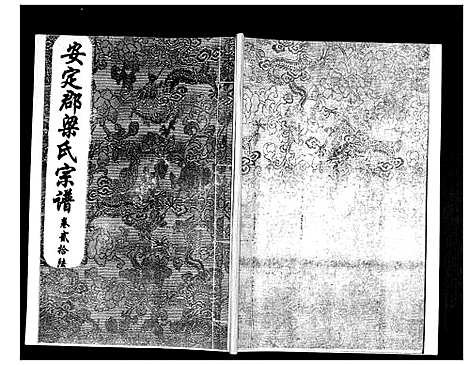 安定郡梁氏宗谱
卷贰拾陆